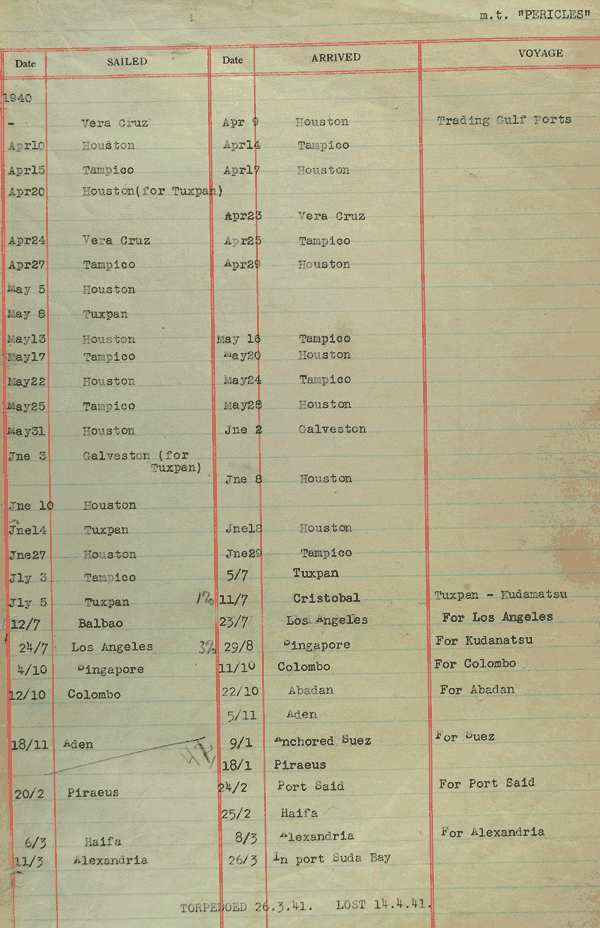 m.t. "PERICLES"
Date SAILED Date ARRIVED VOYAGE
1940
- Vera Cruz Apr 9 Houston Trading Gulf Ports
Apr10 Houston Apr14 Tampico
Apr15 Tampico Apr17 Houston
Apr20 Houston(for Tuxpan)
Apr23 Vera Cruz
Apr24 Vera Cruz Apr25 Tampico
Apr27 Tampico Apr29 Houston
May 5 Houston
May 8 Tuxpan
May13 Houston May 16 Tampico
May17 Tampico May20 Houston
May22 Houston May24 Tampico
May25 Tampico May28 Houston
May31 Houston Jne 2 Galveston
Jne 3 Galveston (for
Tuxpan)
Jne 8 Houston
Jne 10 Houston
Jne14 Tuxpan Jne18 Houston
Jne27 Houston Jne29 Tampico
Jly 3 Tampico 5/7 Tuxpan
Jly 5 Tuxpan 11/7 Cristobal Tuxpan - Kudamatsu
12/7 Balbao 23/7 Los Angeles For Los Angeles
24/7 Los Angeles 29/8 Singapore For Kudanatsu
4/10 Singapore 11/10 Colombo For Colombo
12/10 Colombo 22/10 Abadan For Abadan
5/11 Aden
18/11 Aden 9/1 Anchored Suez For Suez
18/1 Piraeus
20/2 Piraeus 24/2 Port Said For Port Said
25/2 Haifa
6/3 Haifa 8/3 Alexandria For Alexandria
11/3 Alexandria 26/3 In port Suda Bay
TORPEDOED 26.3.41. LOST 14.4.41.